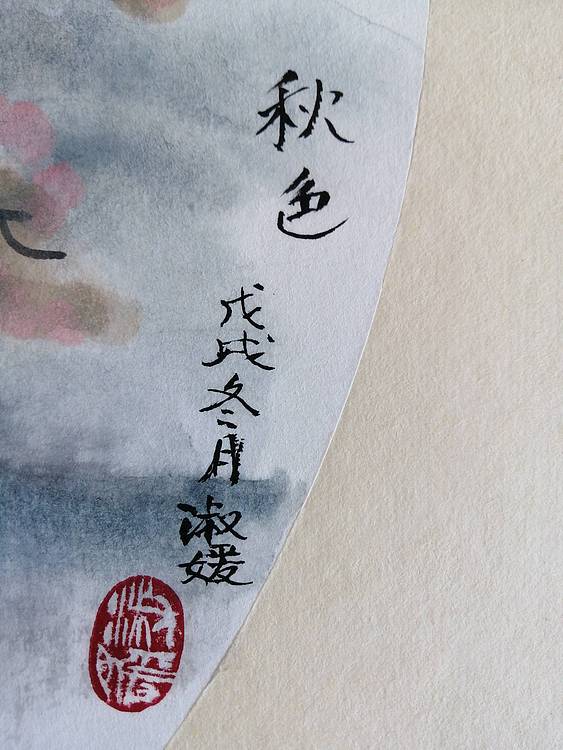 秋色
戊戌冬月
淑媛